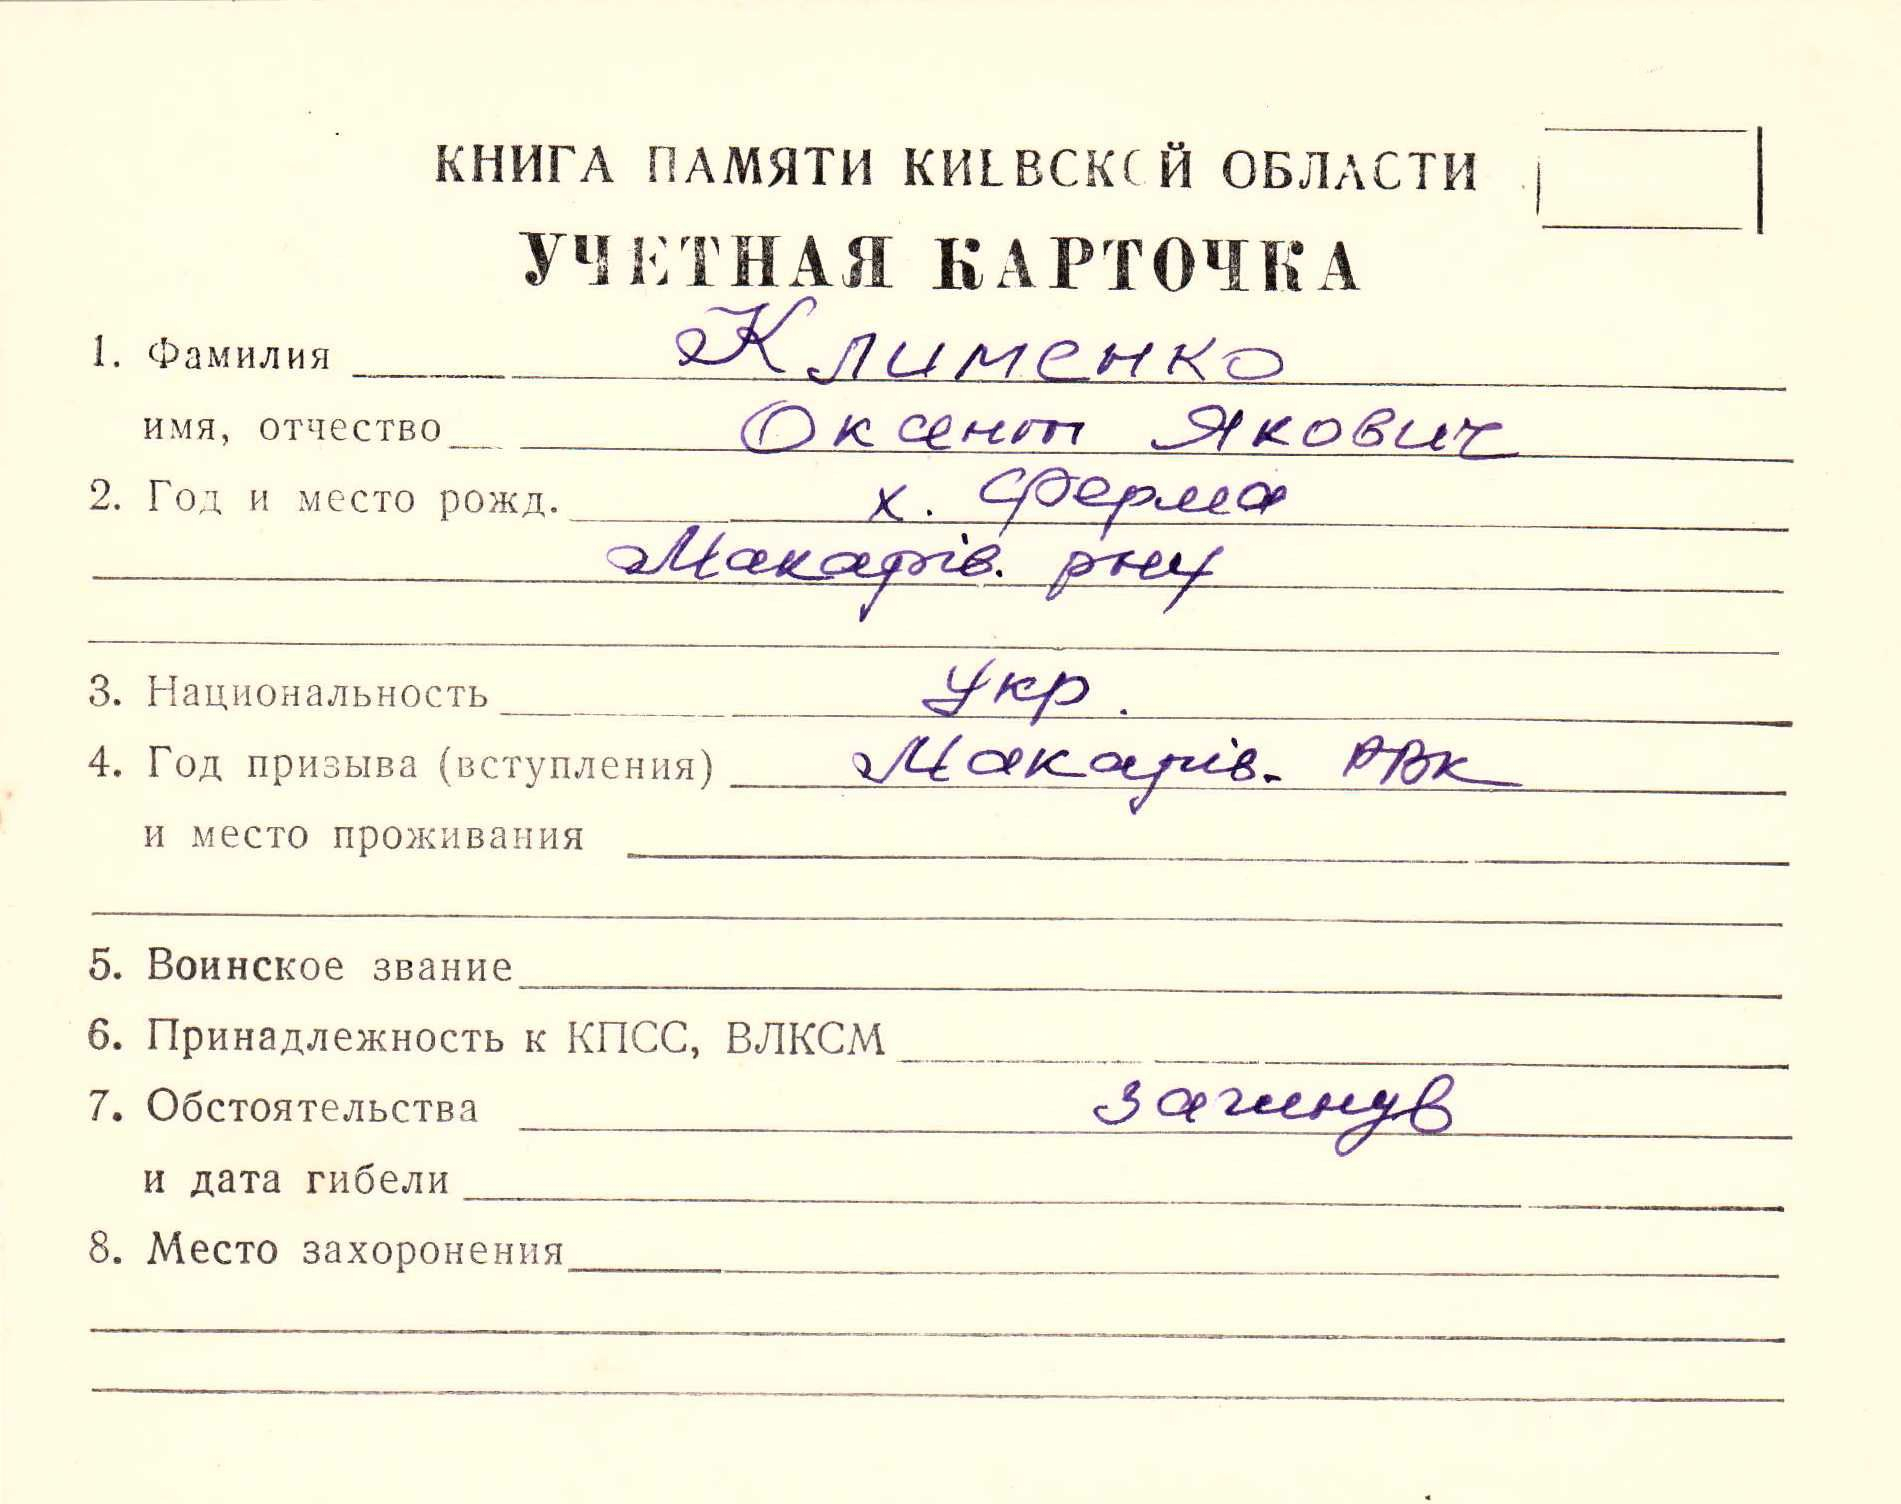 КНИГА ПАМЯТИ КИЕВСКОЙ ОБЛАСТИ
УЧЕТНАЯ КАРТОЧКА
1. Фамилия Клименко
имя, отчество Оксент Якович
2. Год и место рожд. х. Ферма
Макарів. рну
3. Национальность укр.
4. Год призыва (вступления) Макарів. РВК
и место проживания
5. Воинское звание
6. Принадлежность к КПСС, ВЛКСМ
7. Обстоятельства загинув
и дата гибели
8. Место захоронения